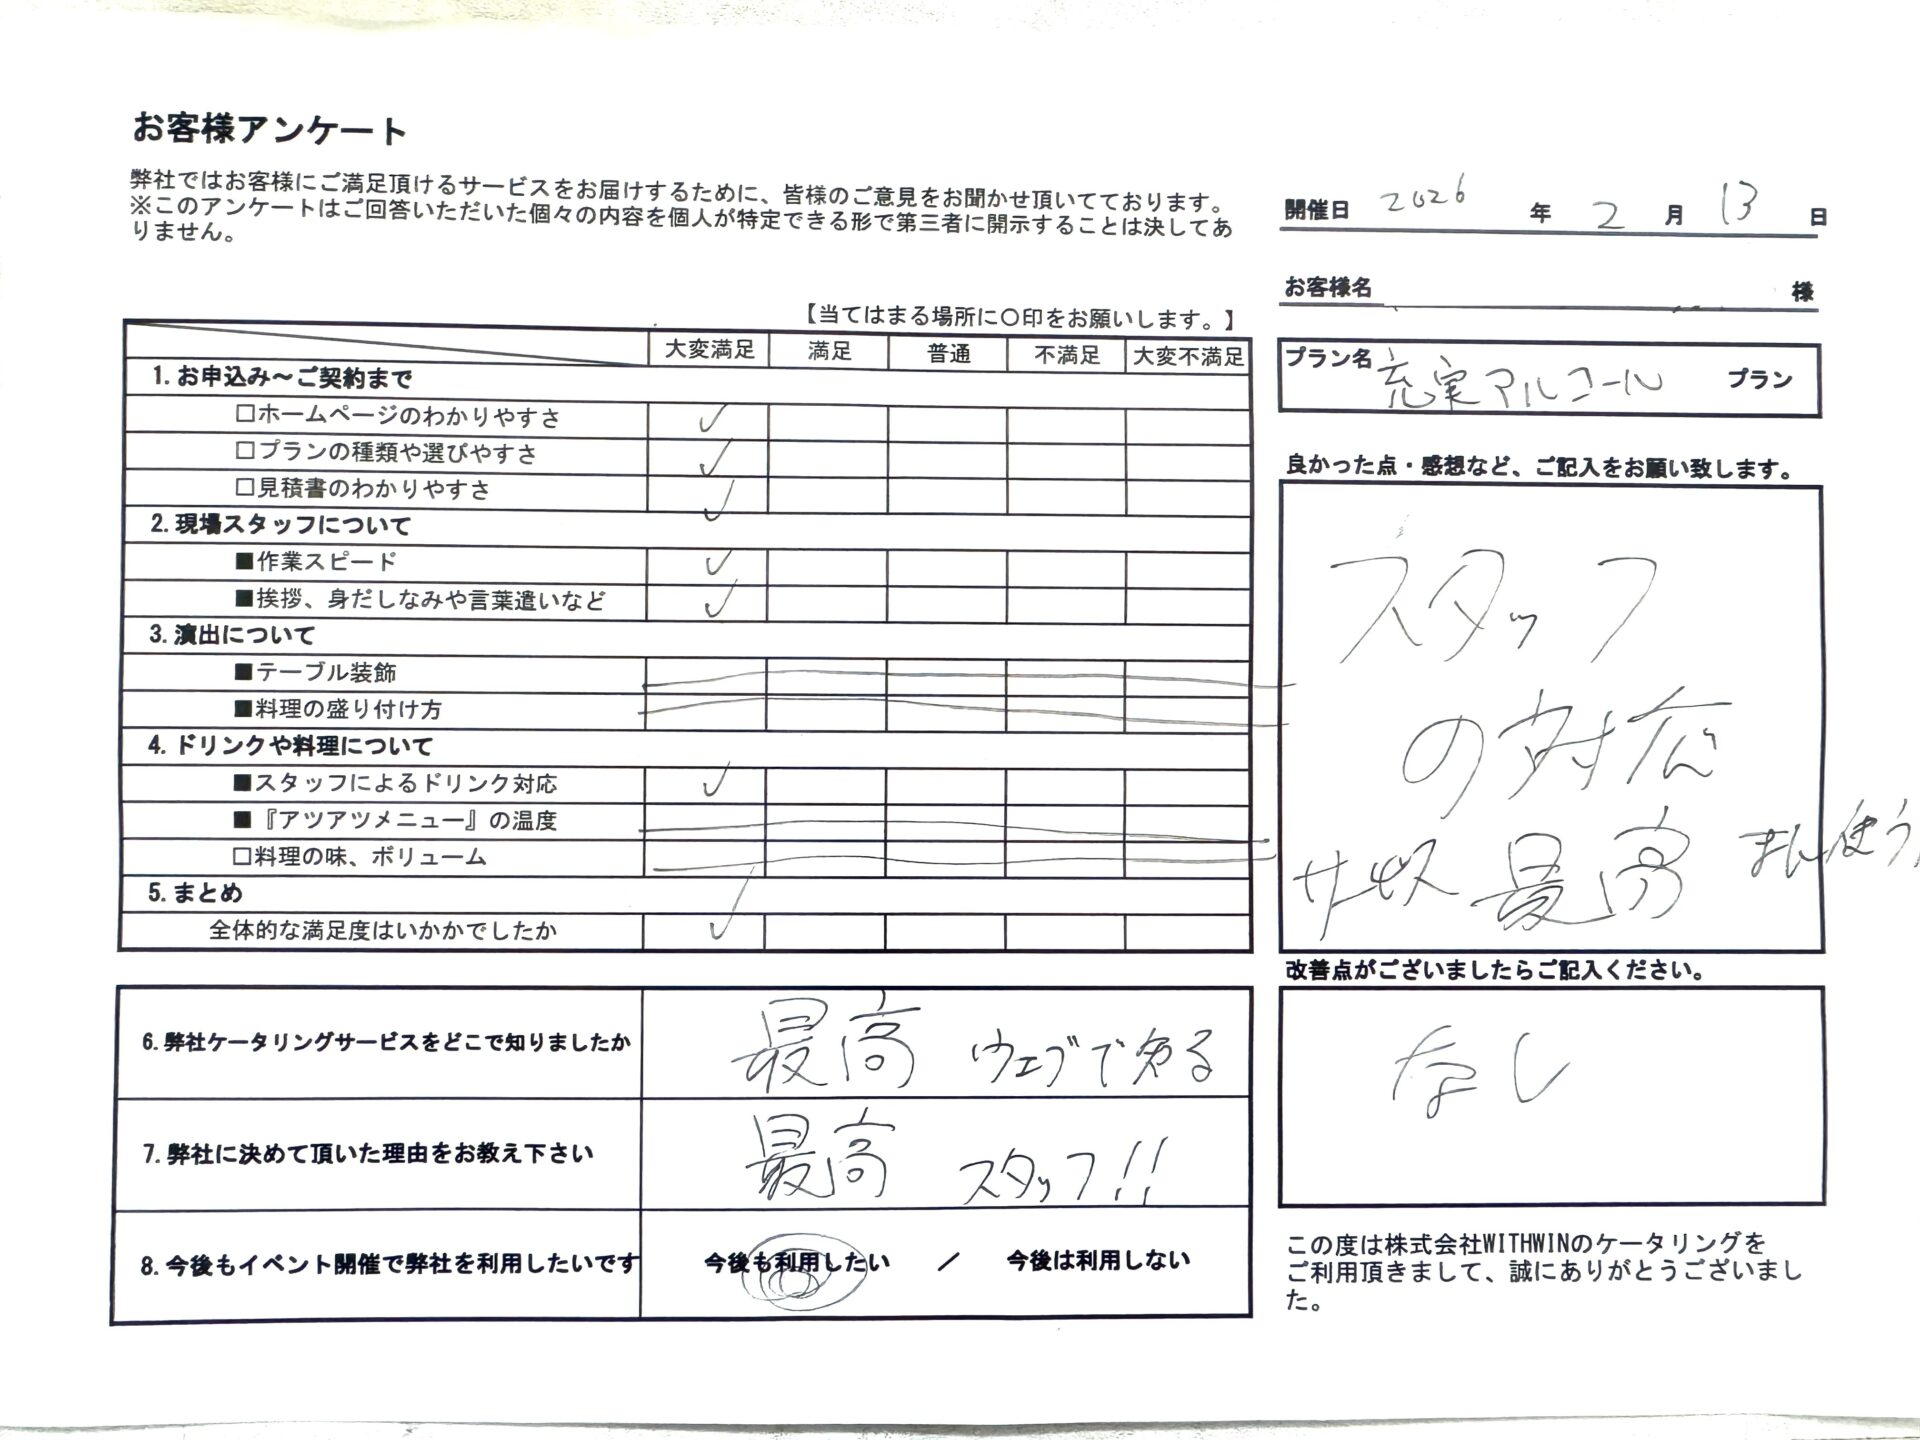 お客様アンケート
弊社ではお客様にご満足頂けるサービスをお届けするために、皆様のご意見をお聞かせ頂いてております。
※このアンケートはご回答いただいた個々の内容を個人が特定できる形で第三者に開示することは決してあ
りません。
開催日 2026 年 2 月 13 日
お客様名 様
プラン名 充実アルコール プラン
【当てはまる場所に〇印をお願いします。】
大変満足 満足 普通 不満足 大変不満足
1. お申込み～ご契約まで
□ホームページのわかりやすさ ✓
□プランの種類や選びやすさ ✓
□見積書のわかりやすさ ✓
2. 現場スタッフについて
■作業スピード ✓
■挨拶、身だしなみや言葉遣いなど ✓
3. 演出について
■テーブル装飾
■料理の盛り付け方
4. ドリンクや料理について
■スタッフによるドリンク対応 ✓
■『アツアツメニュー』の温度
□料理の味、ボリューム
5. まとめ
全体的な満足度はいかかでしたか ✓
良かった点・感想など、ご記入をお願い致します。
スタッフ
の対応
最高
改善点がございましたらご記入ください。
なし
6. 弊社ケータリングサービスをどこで知りましたか 最高 ウェブで知る
7. 弊社に決めて頂いた理由をお教え下さい 最高 スタッフ!!
8. 今後もイベント開催で弊社を利用したいです 今後も利用したい / 今後は利用しない
この度は株式会社WITHWINのケータリングを
ご利用頂きまして、誠にありがとうございまし
た。